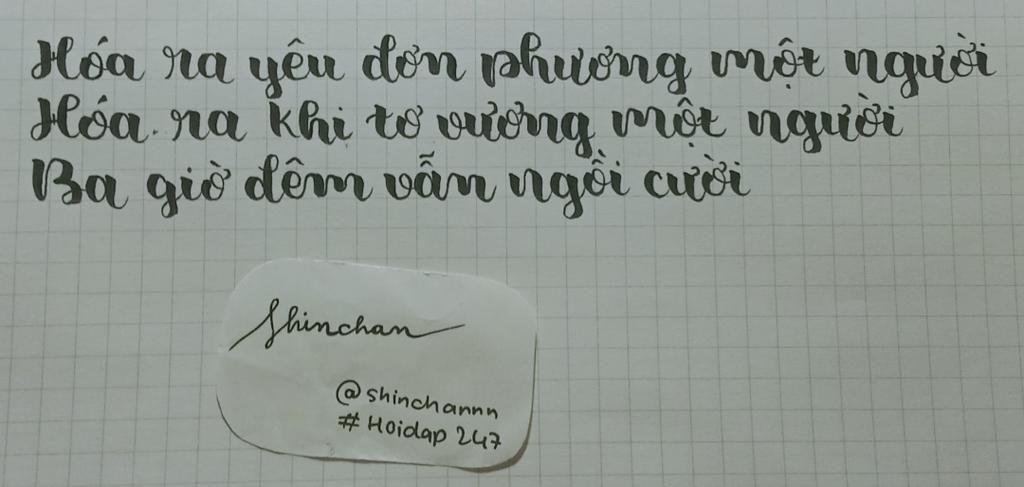 Hóa ra yêu đơn phương một người
Hóa. ra khi tơ vương một người
Ba giờ đêm vẫn ngồi cười
Shinchan
@shinchannn
#Hoidap 247